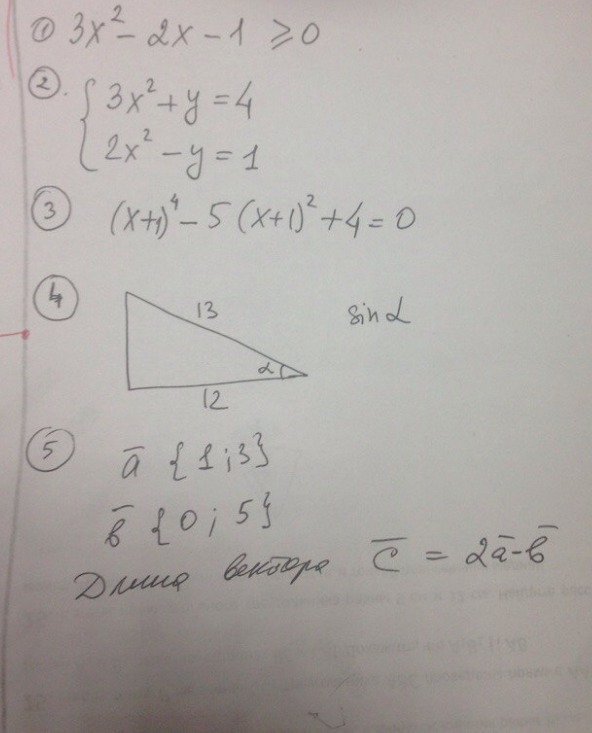 ① 3x² - 2x - 1 ⩾ 0
②. { 3x² + y = 4
2x² - y = 1
③ (x+1)⁴ - 5(x+1)² + 4 = 0
④ 13 sin α
α
12
⑤ a̅ {1;3}
b̅ {0; 5}
Длина вектора c̅ = 2a̅-b̅